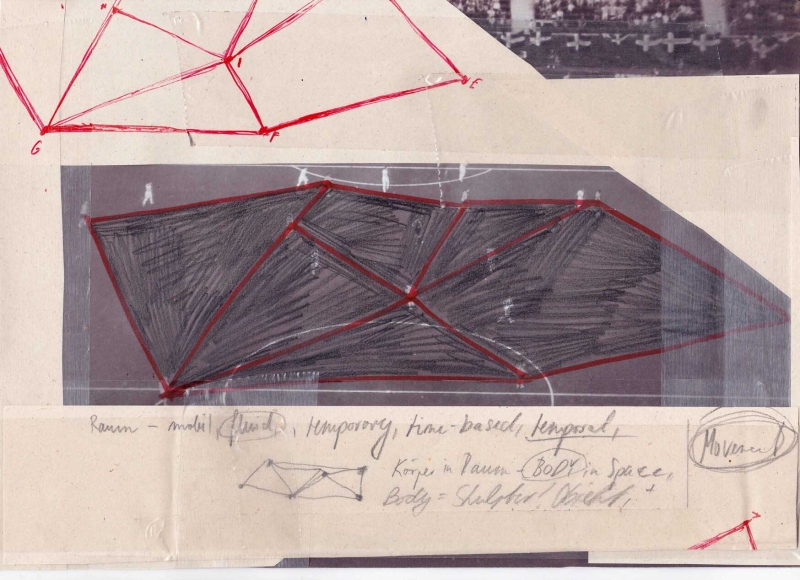 H
I
E
G
F
Raum – mobil, fluid, temporary, time-based, temporal,
Movement
Körper in Raum – BODY in Space,
Body = Skulptur / Objekt,